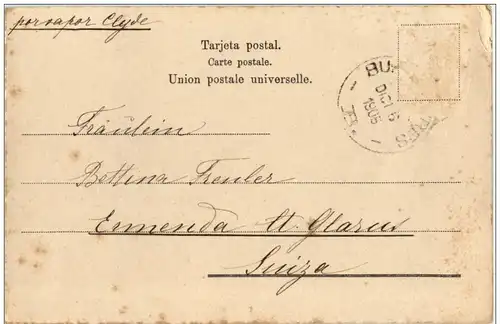 por vapor Clyde
Tarjeta postal.
Carte postale.
Union postale universelle.
BU
DIC 6
1905
Fräulein
Bettina Trenler
Ennenda Ct. Glarus
Suiza